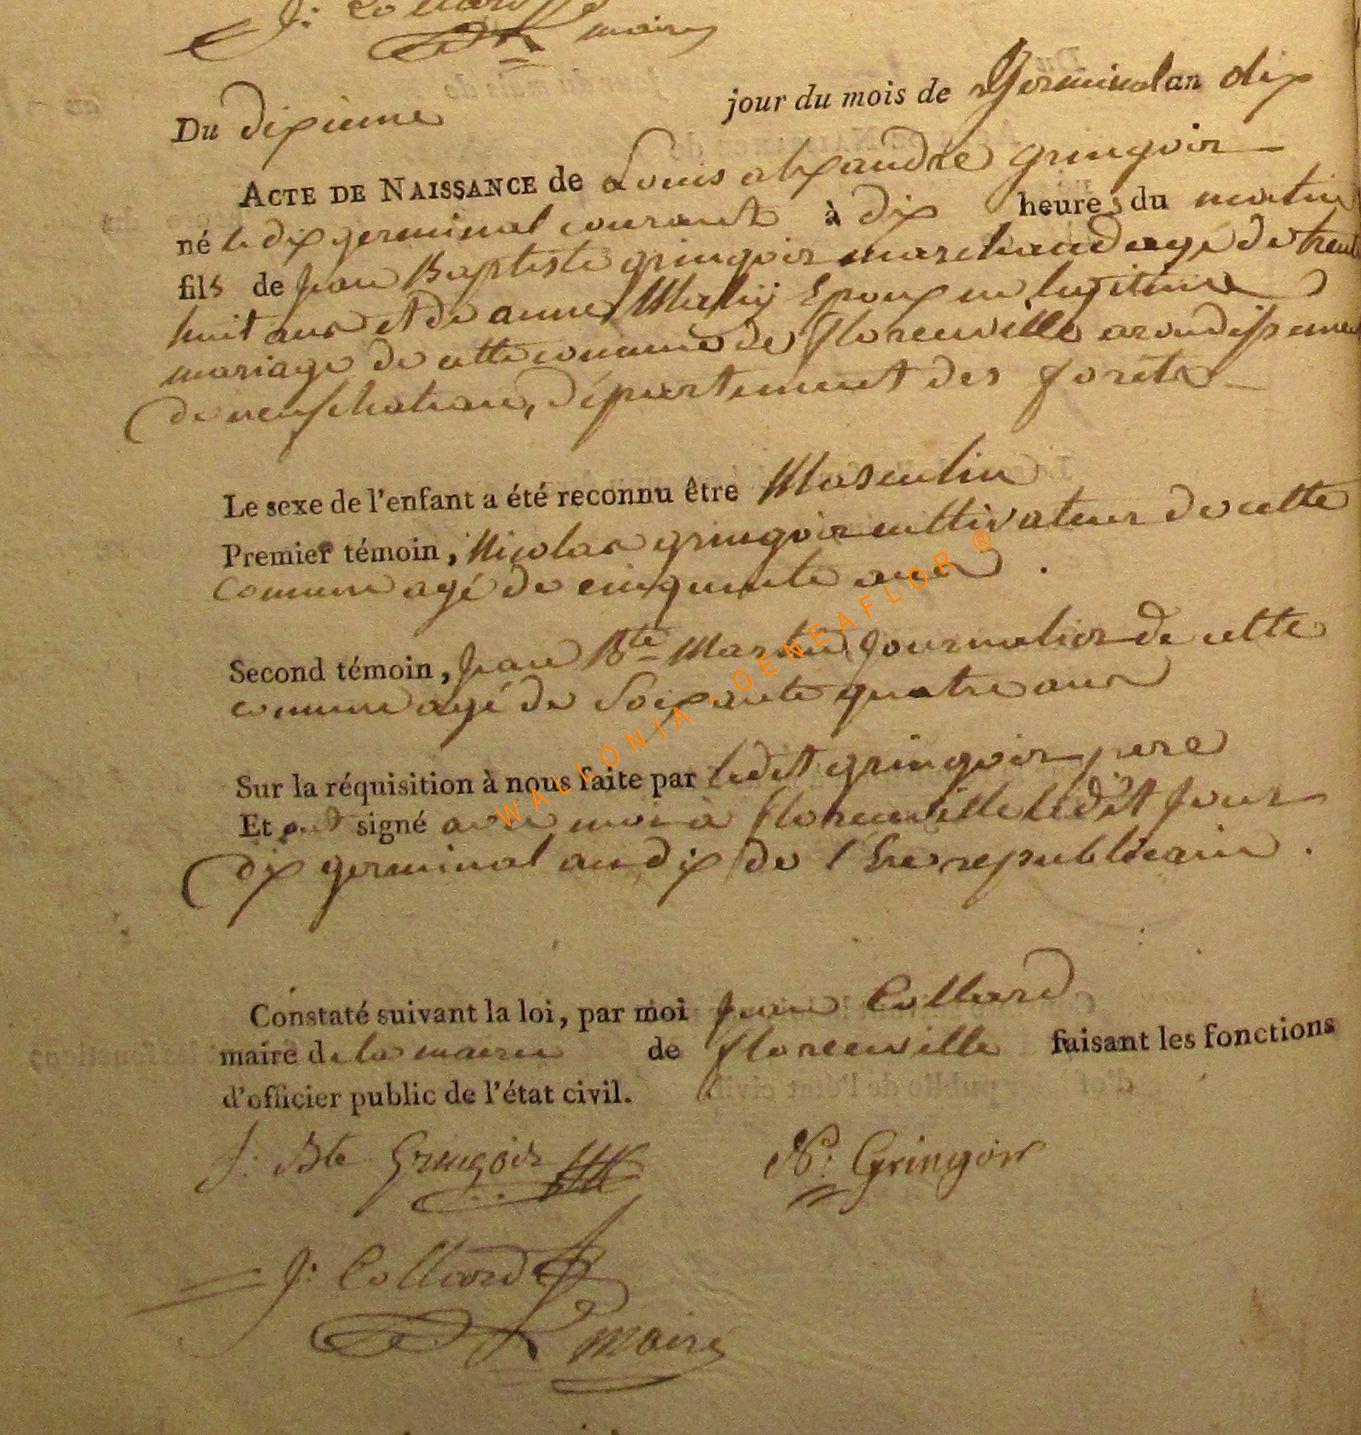 J: Collard
maire
Du dixieme jour du mois de Germinal an dix
ACTE DE NAISSANCE de Louis alexandre gringoir
né le dix germinal courant à dix heures du matin
fils de Jean Baptiste gringoir marchand agé de trente
huit ans et de anne Epoux en legitime
mariage de cette commune de florenville arondissement
de neufchateau, département des forêts
Le sexe de l'enfant a été reconnu être Masculin
Premier témoin, Nicolas gringoir cultivateur de cette
commune agé de cinquante ans.
Second témoin, Jean Bte Martin Journalier de cette
commune agé de Soixante quatre ans
Sur la réquisition à nous faite par ledit gringoir pere
Et ont signé avec moi à florenville ledit Jour
dix germinal an dix de l'Ere republicaine.
Constaté suivant la loi, par moi Jean Collard
maire de la mairie de florenville faisant les fonctions
d'officier public de l'état civil.
J: Bte Gringoir N: Gringoir
J: Collard
maire
WALLONIA - GENEAFLOR ®